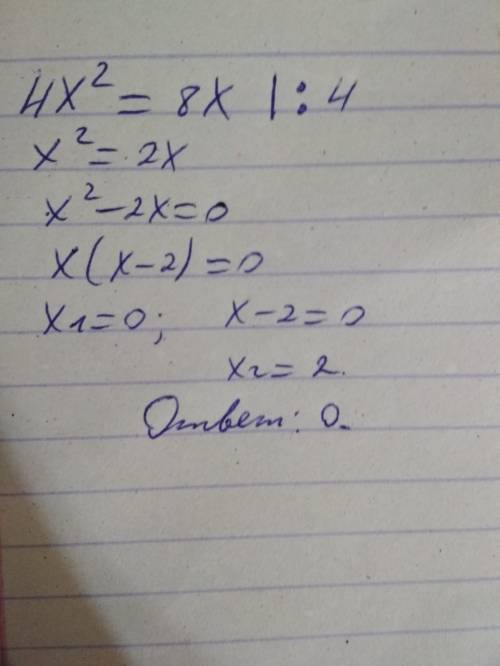 4x² = 8x |: 4
x² = 2x
x² - 2x = 0
x(x - 2) = 0
x₁ = 0; x - 2 = 0
x₂ = 2.
Ответ: 0.